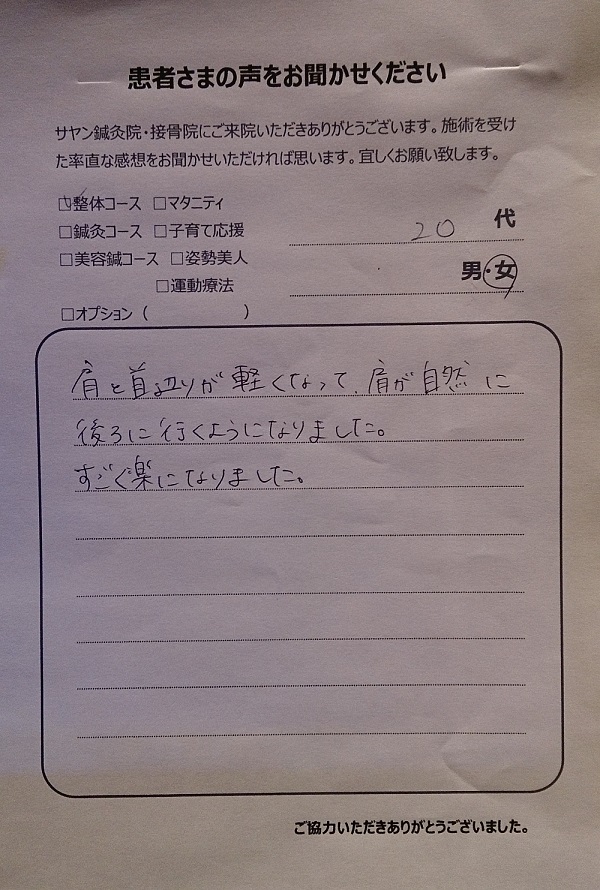 患者さまの声をお聞かせください
サヤン鍼灸院・接骨院にご来院いただきありがとうございます。施術を受け
た率直な感想をお聞かせいただければ思います。宜しくお願い致します。
☑整体コース □マタニティ
□鍼灸コース □子育て応援
20 代
□美容鍼コース □姿勢美人
男・女
□運動療法
□オプション（ ）
肩と首辺りが軽くなって、肩が自然に
後ろに行くようになりました。
すごく楽になりました。
ご協力いただきありがとうございました。